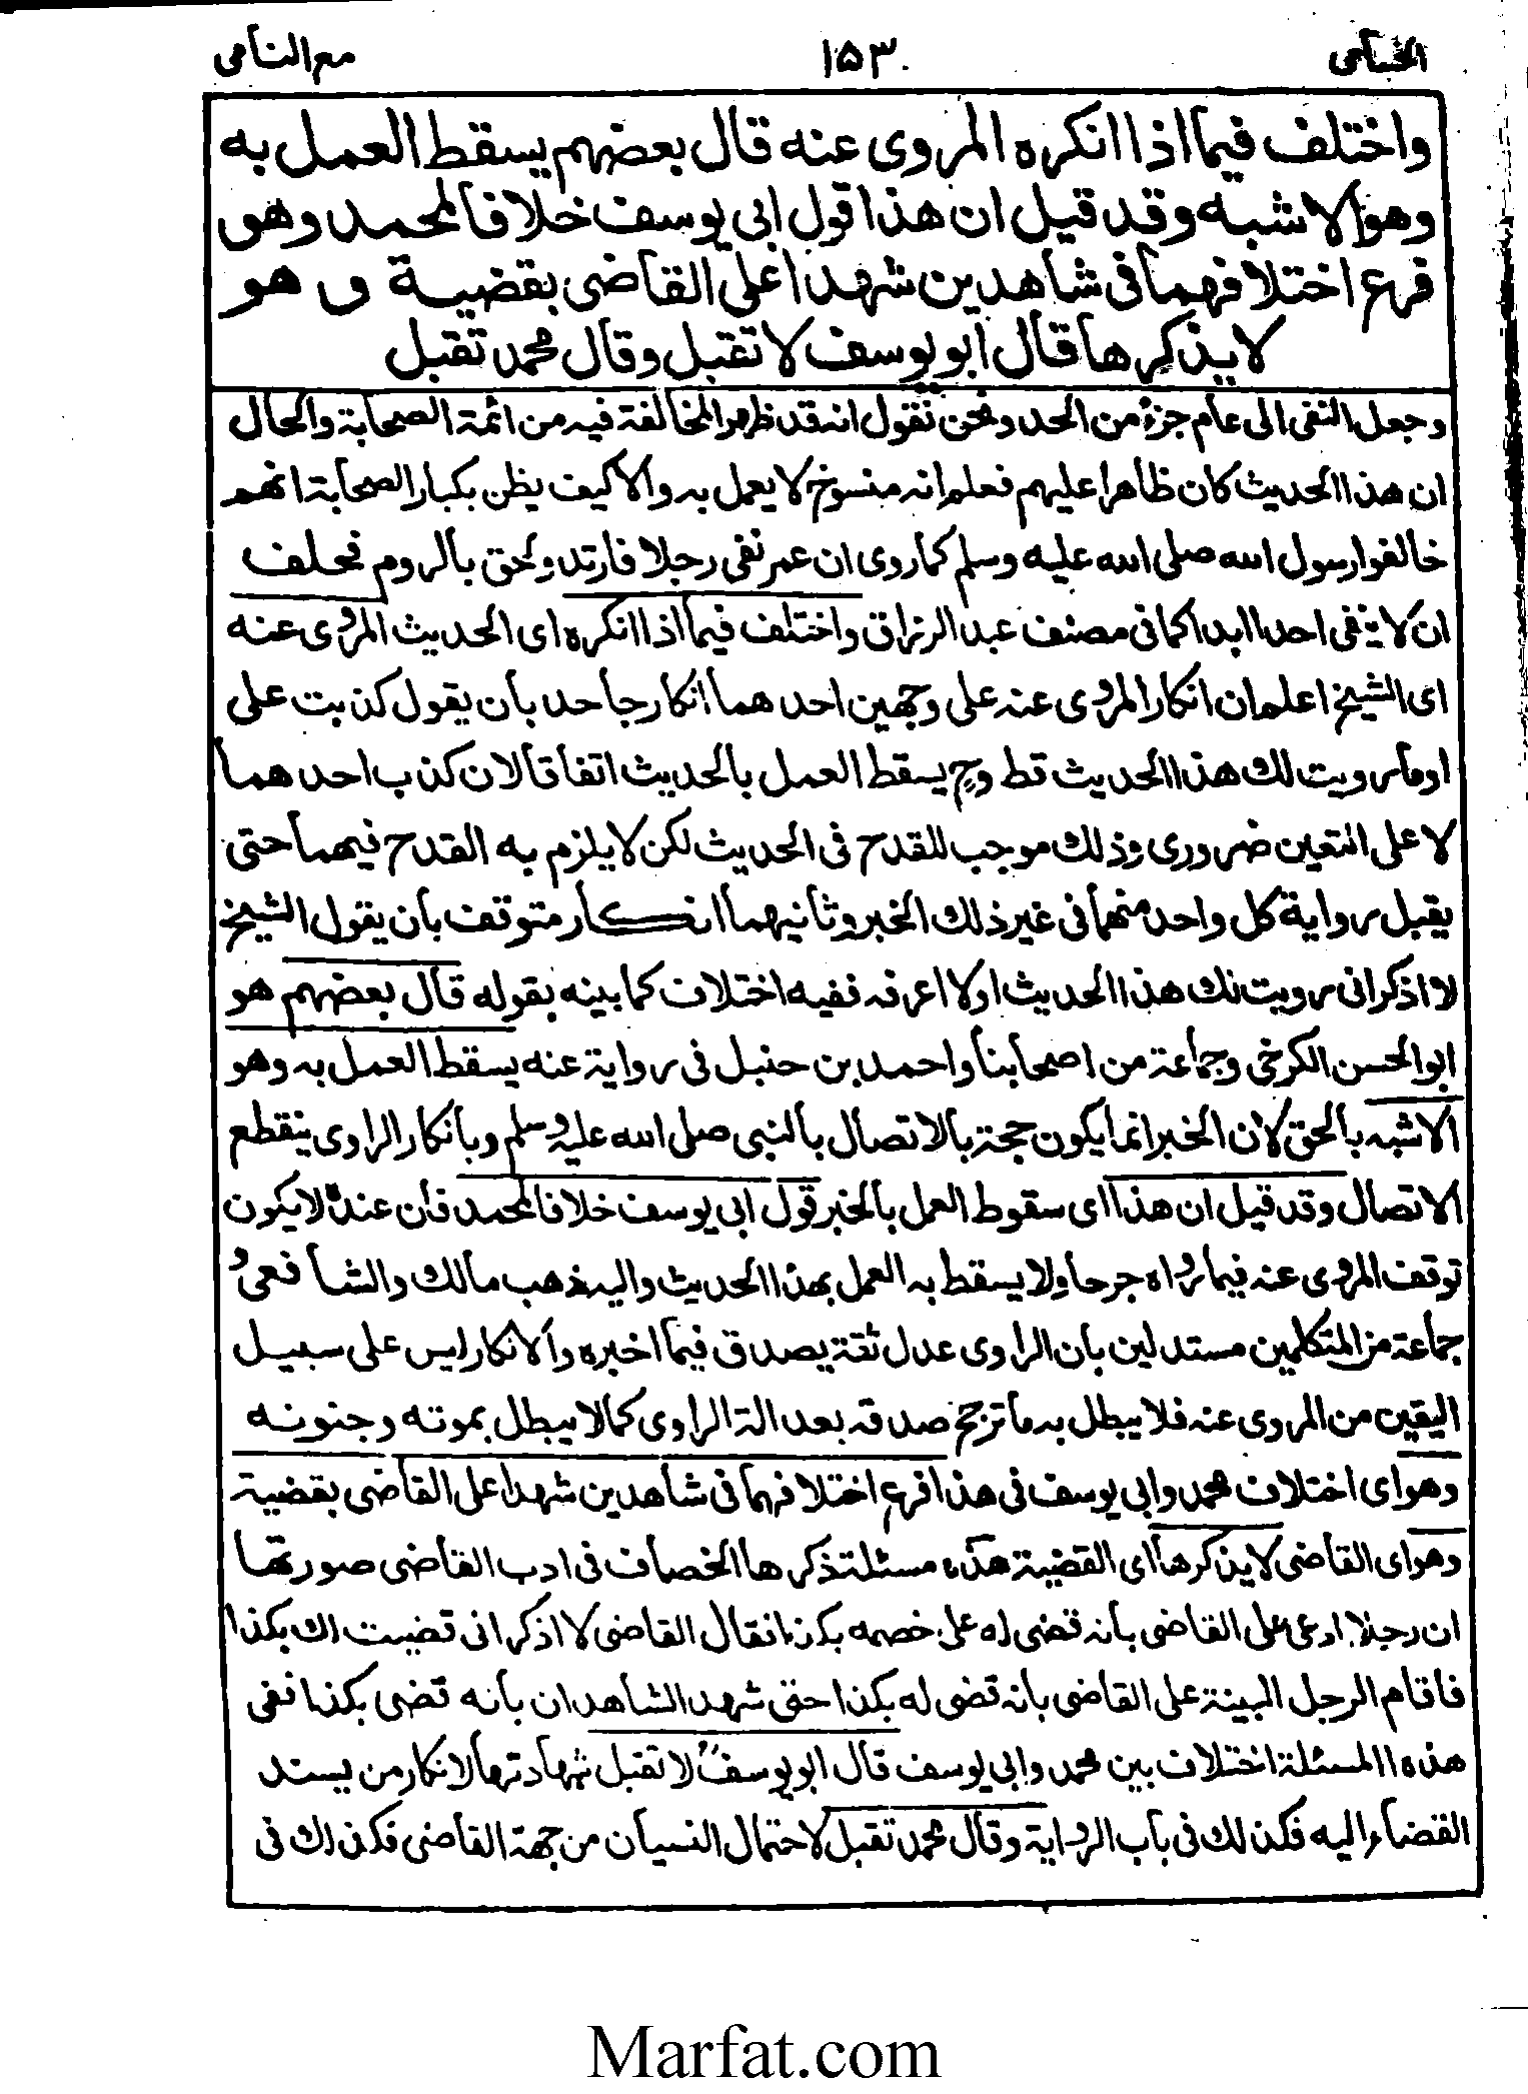 الحسامی ۱۵۳ مع النامی
واختلف فیما اذا انکره المروی عنه قال بعضهم یسقط العمل به
وهو الاشبه وقد قیل ان هذا قول ابی یوسف خلافا لمحمد وهو
فرع اختلافهما فی شاهدین شهدا علی القاضی بقضیة وهو
لا یذکرها قال ابو یوسف لا تقبل وقال محمد تقبل
وجعل النفی الی عام جزءً من الحد ونحن نقول انه قد ظهر المخالفة فیه من ائمة الصحابة والحال
ان هذا الحدیث کان ظاهرا علیهم فعلم انه منسوخ لا یعمل به والا کیف یظن بکبار الصحابة انهم
خالفوا رسول الله صلی الله علیه وسلم کما روی ان عمر نفی رجلا فارتد ولحق بالروم فحلف
ان لا ینفی احدا ابدا کما فی مصنف عبد الرزاق واختلف فیما اذا انکره ای الحدیث المروی عنه
ای الشیخ اعلم ان انکار المروی عنه علی وجهین احدهما انکار جاحد بان یقول کذبت علی
او ما رویت لک هذا الحدیث قط وح یسقط العمل بالحدیث اتفاقا لان کذب احدهما
لا علی التعین ضروری وذلک موجب للقدح فی الحدیث لکن لا یلزم به القدح فیهما حتی
یقبل روایة کل واحد منهما فی غیر ذلک الخبر وثانیهما انکار متوقف بان یقول الشیخ
لا اذکر انی رویت لک هذا الحدیث او لا اعرفه ففیه اختلاف کما بینه بقوله قال بعضهم هو
ابو الحسن الکرخی وجماعة من اصحابنا واحمد بن حنبل فی روایة عنه یسقط العمل به وهو
الاشبه بالحق لان الخبر انما یکون حجة بالاتصال بالنبی صلی الله علیه وسلم وبانکار الراوی ینقطع
الاتصال وقد قیل ان هذا ای سقوط العمل بالخبر قول ابی یوسف خلافا لمحمد فان عنده لا یکون
توقف المروی عنه فیما رواه جرحا ولا یسقط به العمل بهذا الحدیث والیه ذهب مالک والشافعی و
جماعة من المتکلمین مستدلین بان الراوی عدل ثقة یصدق فیما اخبره والانکار لیس علی سبیل
الیقین من المروی عنه فلا یبطل به ما ترجح صدقه بعدالة الراوی کما لا یبطل بموته وجنونه
وهو ای اختلاف محمد وابی یوسف فی هذا فرع اختلافهما فی شاهدین شهدا علی القاضی بقضیة
وهو ای القاضی لا یذکرها ای القضیة هذه مسئلة ذکرها الخصاف فی ادب القاضی صورتها
ان رجلا ادعی علی القاضی بانه قضی له علی خصمه بکذا فقال القاضی لا اذکر انی قضیت لک بکذا
فاقام الرجل البینة علی القاضی بانه قضی له بکذا حتی شهد الشاهدان بانه قضی بکذا ففی
هذه المسئلة اختلاف بین محمد وابی یوسف قال ابو یوسف لا تقبل شهادتهما لانکار من یسند
القضاء الیه فکذلک فی باب الروایة وقال محمد تقبل لاحتمال النسیان من جهة القاضی فکذلک فی
Marfat.com